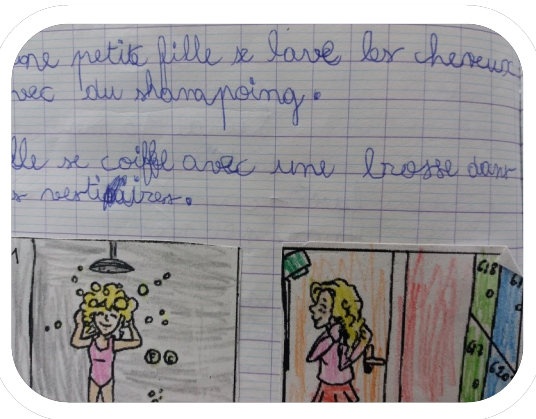 une petite fille se lave les cheveux
avec du shampoing.
Elle se coiffe avec une brosse dans
les vestiaires.
1
618
617